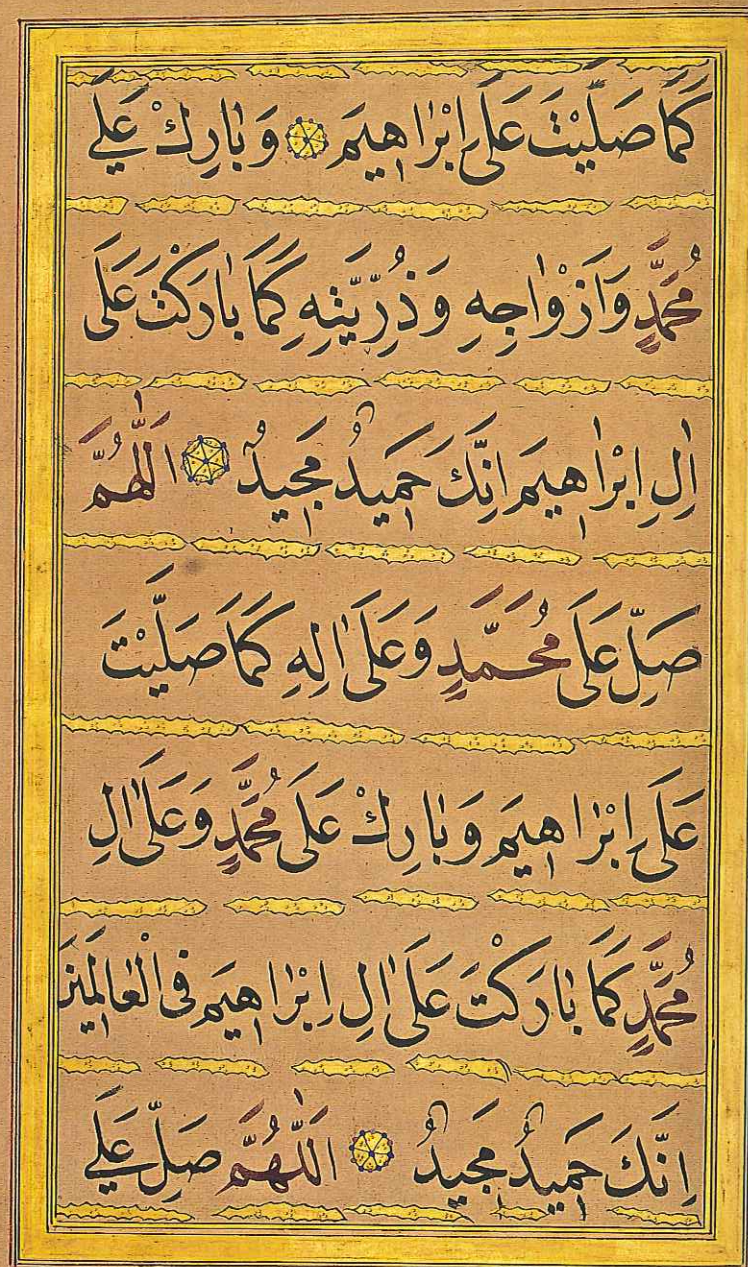 كَمَا صَلَّيْتَ عَلَى اِبْرٰاهِيمَ وَبٰارِكْ عَلٰى
مُحَمَّدٍ وَاَزْوٰاجِهِ وَذُرِّيَّتِهِ كَمَا بٰارَكْتَ عَلَى
اٰلِ اِبْرٰاهِيمَ اِنَّكَ حَمِيدٌ مَجِيدٌ اَللّٰهُمَّ
صَلِّ عَلَى مُحَمَّدٍ وَعَلَى اٰلِهِ كَمَا صَلَّيْتَ
عَلَى اِبْرٰاهِيمَ وَبٰارِكْ عَلَى مُحَمَّدٍ وَعَلَى اٰلِ
مُحَمَّدٍ كَمَا بٰارَكْتَ عَلَى اٰلِ اِبْرٰاهِيمَ فِى الْعٰالَمِينَ
اِنَّكَ حَمِيدٌ مَجِيدٌ اَللّٰهُمَّ صَلِّ عَلٰى